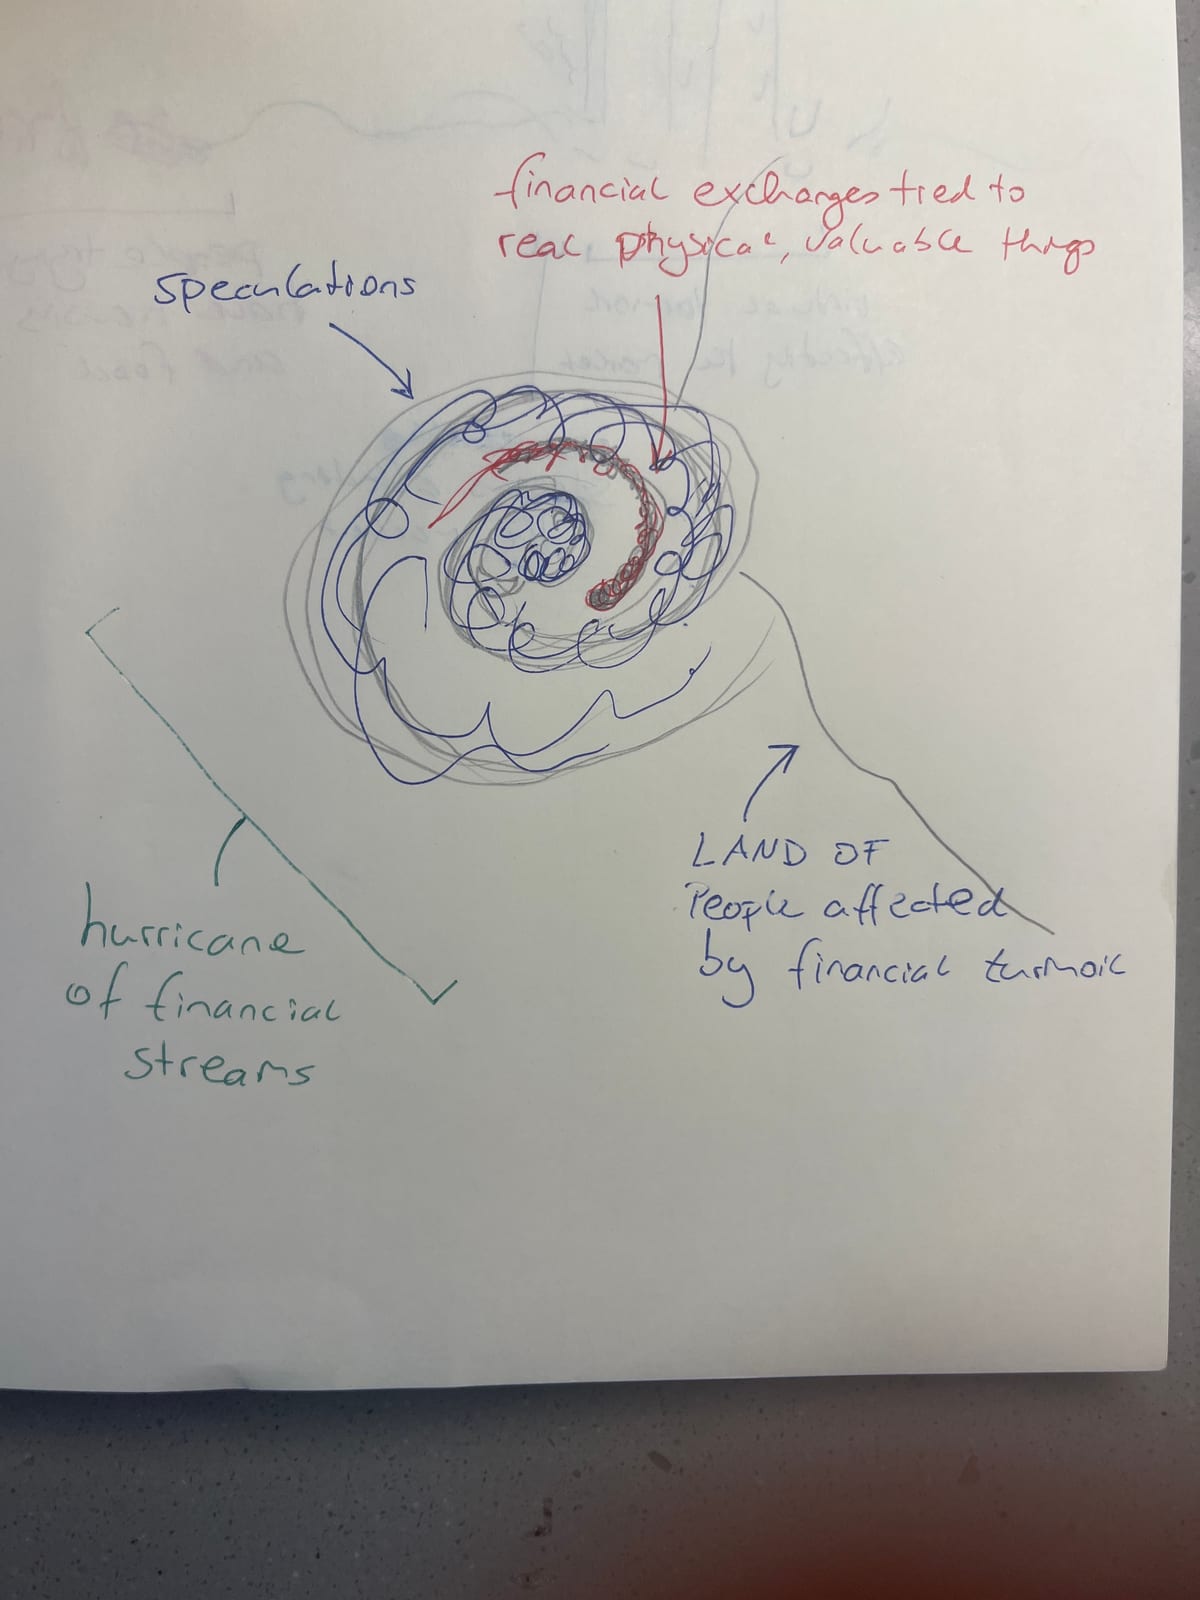 financial exchanges tied to
real physical, valuable things
speculations
LAND OF
People affected
by financial turmoil
hurricane
of financial
streams